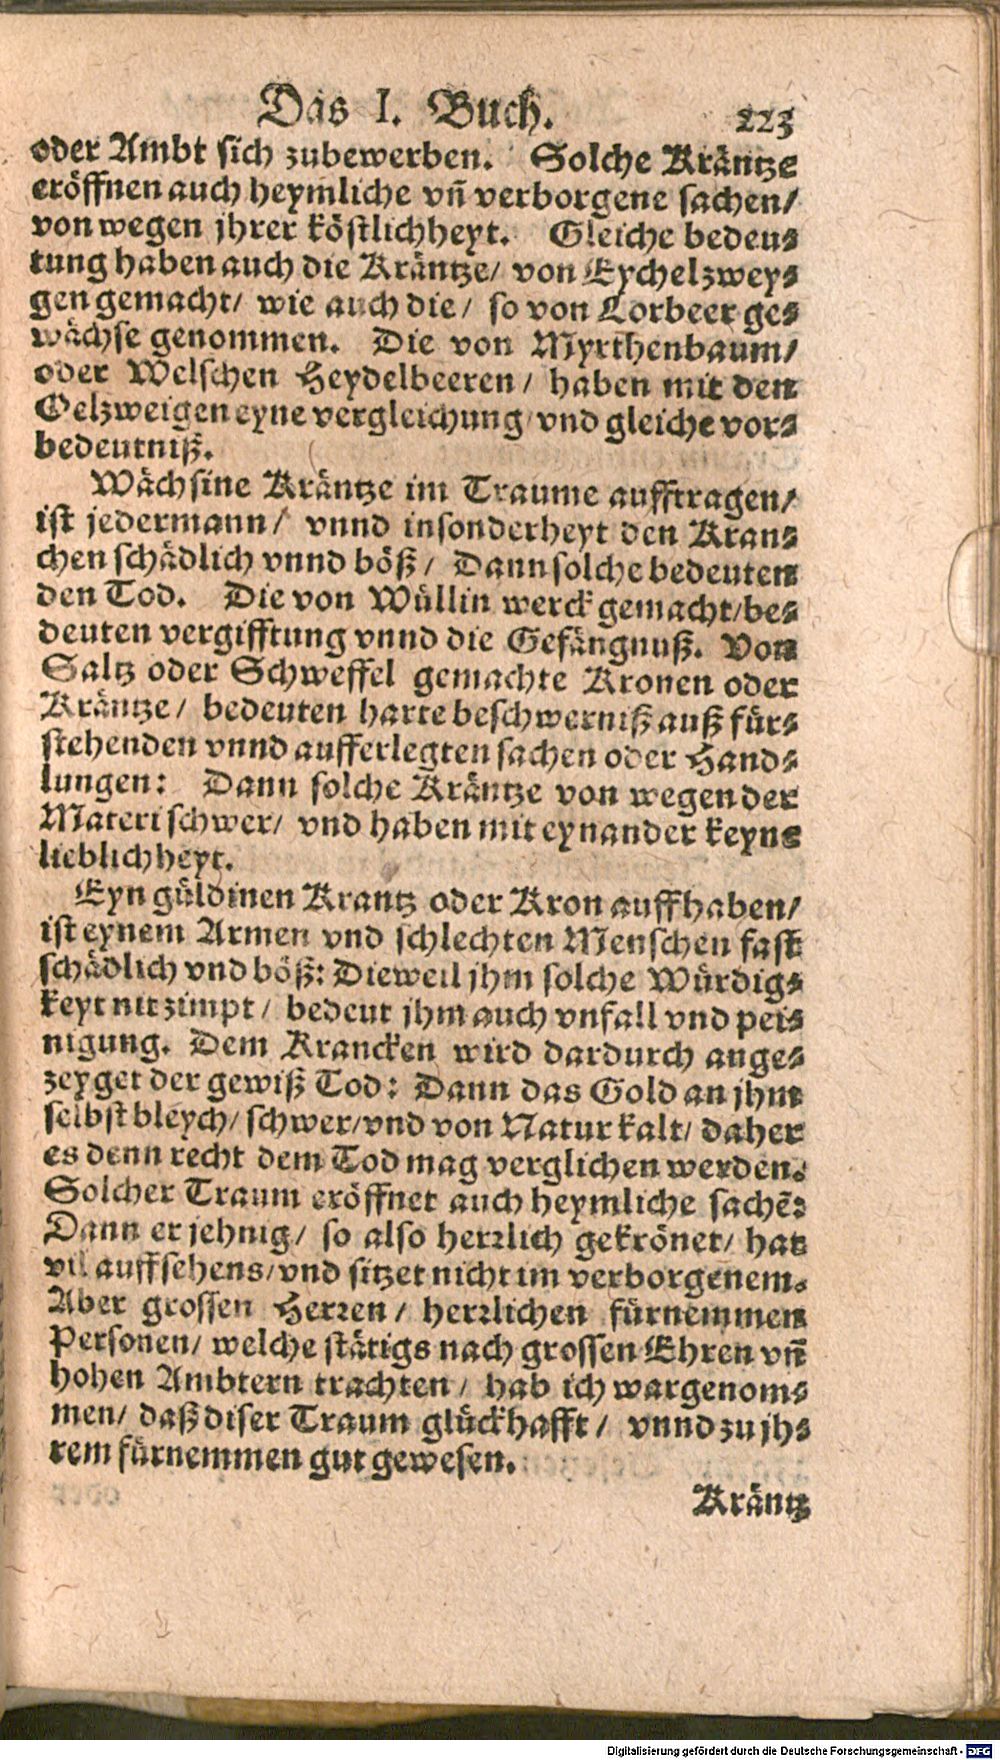 Das I. Buch. 223
oder Ambt sich zubewerben. Solche Kräntze
eröffnen auch heymliche vñ verborgene sachen/
von wegen jhrer köstlichheyt. Gleiche bedeu-
tung haben auch die Kräntze/ von Eychelzwey-
gen gemacht/ wie auch die/ so von Lorbeer ge-
wächse genommen. Die von Myrthenbaum/
oder Welschen Heydelbeeren/ haben mit den
Oelzweigen eyne vergleichung/ vnd gleiche vor-
bedeutniß.
Wächsine Kräntze im Traume aufftragen/
ist jedermann/ vnnd insonderheyt den Kran-
chen schädlich vnnd böß/ Dann solche bedeuten
den Tod. Die von Wüllin werck gemacht/ be-
deuten vergifftung vnnd die Gefängnuß. Von
Saltz oder Schweffel gemachte Kronen oder
Kräntze/ bedeuten harte beschwerniß auß für-
stehenden vnnd aufferlegten sachen oder Hand-
lungen: Dann solche Kräntze von wegen der
Materi schwer/ vnd haben mit eynander keyne
lieblichheyt.
Eyn güldinen Krantz oder Kron auffhaben/
ist eynem Armen vnd schlechten Menschen fast
schädlich vnd böß: Dieweil jhm solche Würdig-
keyt nit zimpt/ bedeut jhm auch vnfall vnd pei-
nigung. Dem Krancken wird dardurch ange-
zeyget der gewiß Tod: Dann das Gold an jhm
selbst bleych/ schwer/ vnd von Natur kalt/ daher
es denn recht dem Tod mag verglichen werden.
Solcher Traum eröffnet auch heymliche sachẽ:
Dann er jehnig/ so also herꝛlich gekrönet/ hat
vil auffsehens/ vnd sitzet nicht im verborgenem.
Aber grossen Herꝛen/ herꝛlichen fürnemmen
Personen/ welche stätigs nach grossen Ehren vñ
hohen Ambtern trachten/ hab ich wargenom-
men/ daß diser Traum glückhafft/ vnnd zu jh-
rem fürnemmen gut gewesen.
Kräntz
Digitalisierung gefördert durch die Deutsche Forschungsgemeinschaft - DFG